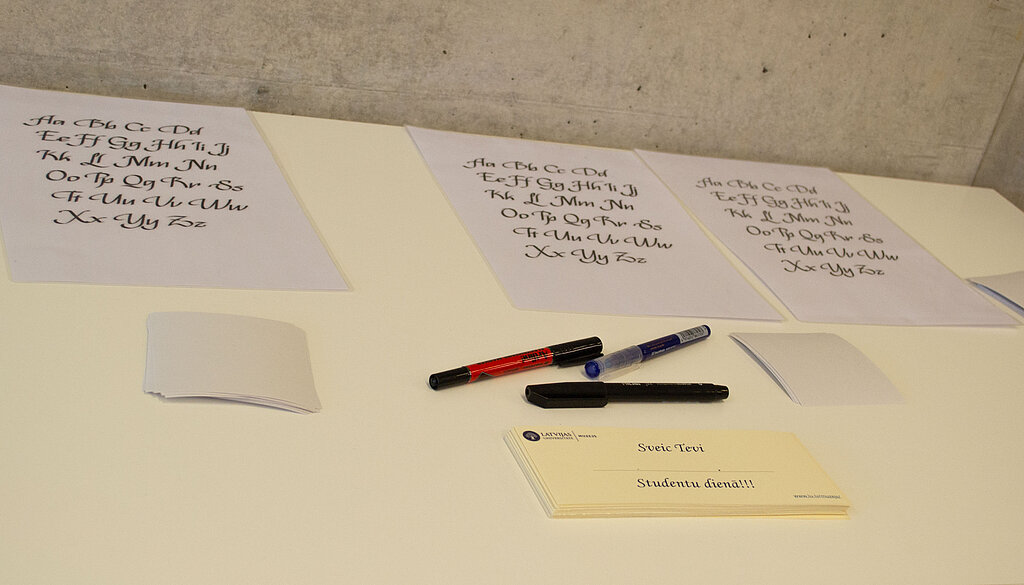 Aa Bb Cc Dd
Ee Ff Gg Hh Ii Jj
Kk Ll Mm Nn
Oo Pp Qq Rr Ss
Tt Uu Vv Ww
Xx Yy Zz
Aa Bb Cc Dd
Ee Ff Gg Hh Ii Jj
Kk Ll Mm Nn
Oo Pp Qq Rr Ss
Tt Uu Vv Ww
Xx Yy Zz
Aa Bb Cc Dd
Ee Ff Gg Hh Ii Jj
Kk Ll Mm Nn
Oo Pp Qq Rr Ss
Tt Uu Vv Ww
Xx Yy Zz
LATVIJAS
UNIVERSITĀTE
MUZEJS
Sveic Tevi
Studentu dienā!!!
www.lu.lv/muzejs/